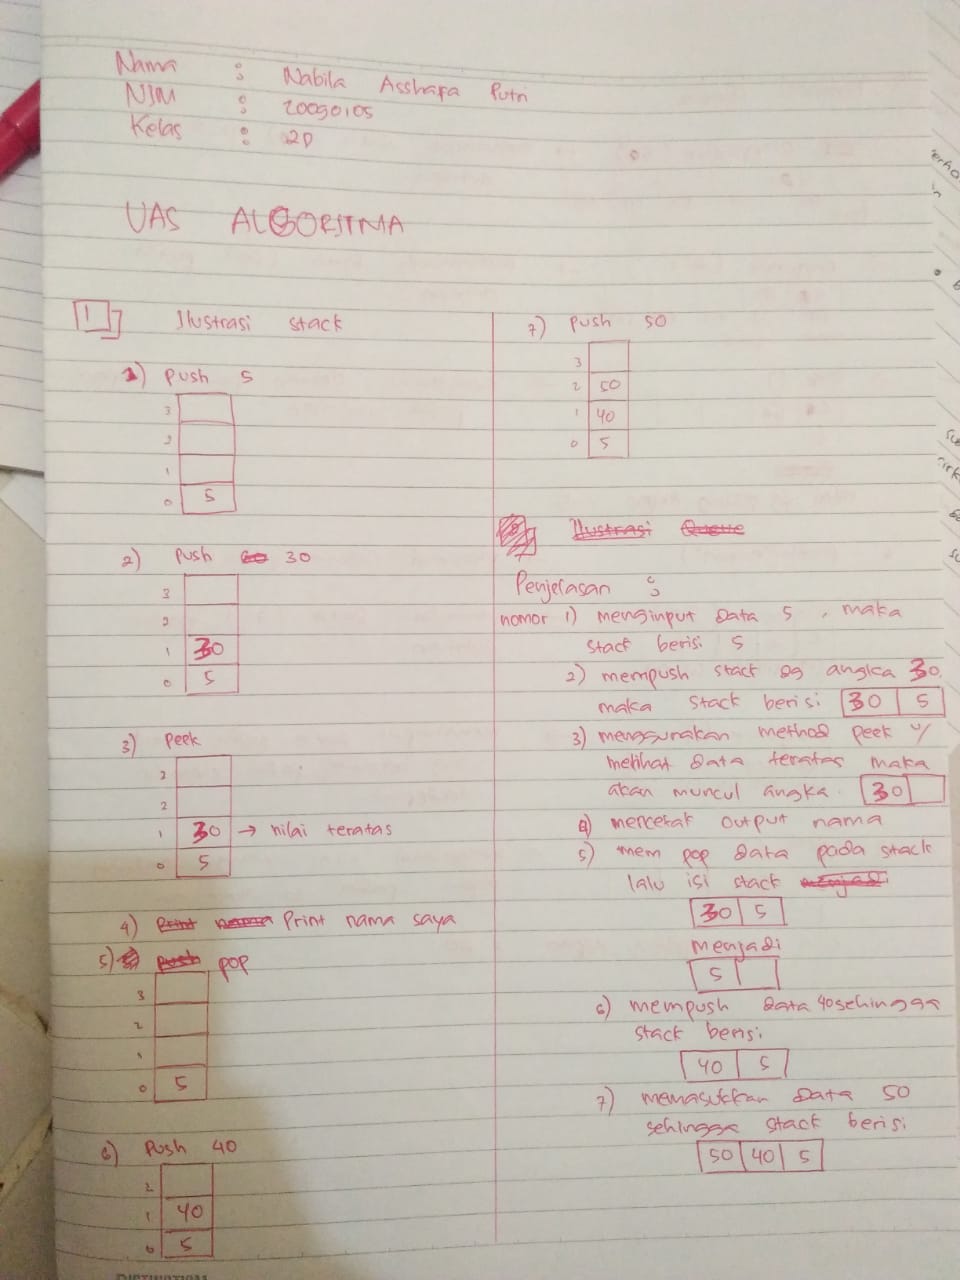 Nama : Nabila Asshafa Putri
NIM : 20090105
Kelas : 2D
UAS ALGORITMA
1 Ilustrasi stack
1) Push 5
3
2
1
0 5
2) Push 30
3
2
1 30
0 5
3) Peek
3
2
1 30 → nilai teratas
0 5
4) Print nama saya
5) pop
3
2
1
0 5
6) Push 40
2
1 40
0 5
7) Push 50
3
2 50
1 40
0 5
Ilustrasi Queue
Penjelasan :
nomor 1) menginput data 5, maka
stack berisi 5
2) mempush stack dg angka 30.
maka stack berisi 30 5
3) menggunakan method peek u/
melihat data teratas maka
akan muncul angka. 30
4) mencetak output nama
5) mem pop data pada stack
lalu isi stack menjadi
30 5
menjadi
5
6) mempush data 40 sehingga
stack berisi.
40 5
7) memasukkan data 50
sehingga stack berisi
50 40 5